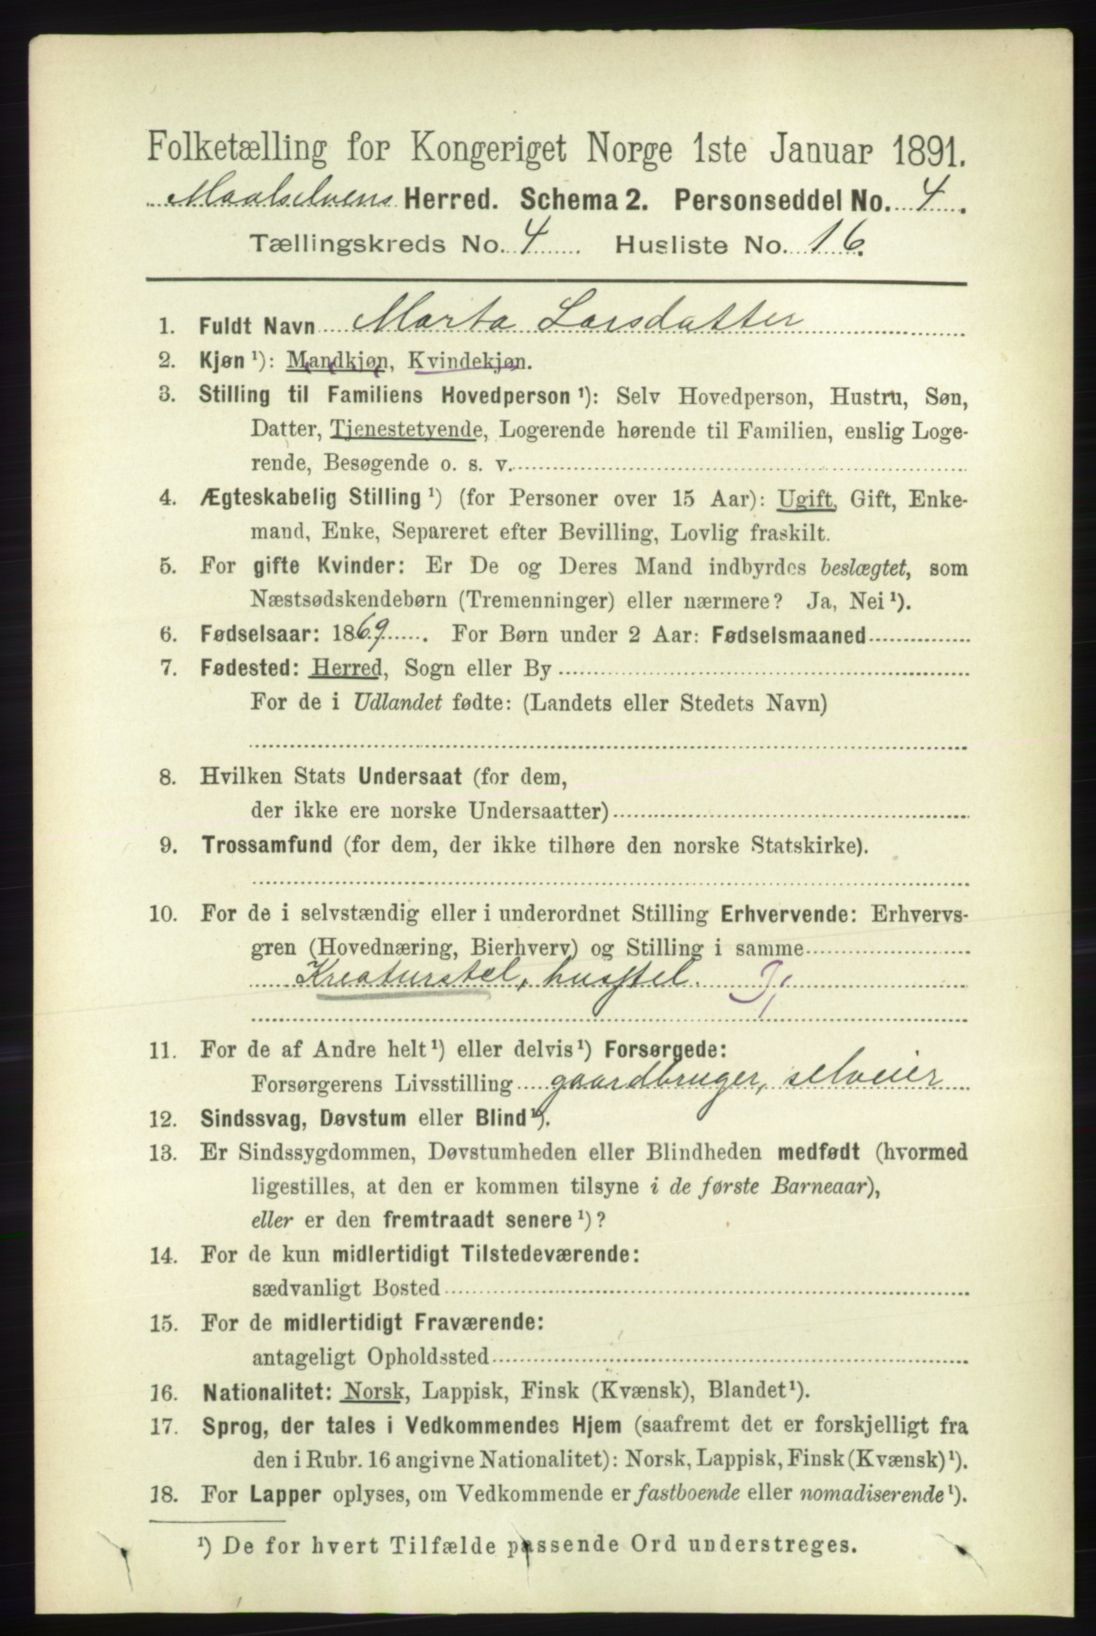 Folketælling for Kongeriget Norge 1ste Januar 1891.
Maalselvens Herred. Schema 2. Personseddel No. 4.
Tællingskreds No. 4 Husliste No. 16.
1. Fuldt Navn Marta Larsdatter
2. Kjøn ¹): Mandkjøn, Kvindekjøn.
3. Stilling til Familiens Hovedperson ¹): Selv Hovedperson, Hustru, Søn,
Datter, Tjenestetyende, Logerende hørende til Familien, enslig Loge-
rende, Besøgende o. s. v.
4. Ægteskabelig Stilling ¹) (for Personer over 15 Aar): Ugift, Gift, Enke-
mand, Enke, Separeret efter Bevilling, Lovlig fraskilt.
5. For gifte Kvinder: Er De og Deres Mand indbyrdes beslægtet, som
Næstsødskendebørn (Tremenninger) eller nærmere? Ja, Nei ¹).
6. Fødselsaar: 1869. For Børn under 2 Aar: Fødselsmaaned
7. Fødested: Herred, Sogn eller By
For de i Udlandet fødte: (Landets eller Stedets Navn)
8. Hvilken Stats Undersaat (for dem,
der ikke ere norske Undersaatter)
9. Trossamfund (for dem, der ikke tilhøre den norske Statskirke).
10. For de i selvstændig eller i underordnet Stilling Erhvervende: Erhvervs-
gren (Hovednæring, Bierhverv) og Stilling i samme
Kreaturstel, husstel.
11. For de af Andre helt ¹) eller delvis ¹) Forsørgede:
Forsørgerens Livsstilling gaardbruger, selveier
12. Sindssvag, Døvstum eller Blind ¹).
13. Er Sindssygdommen, Døvstumheden eller Blindheden medfødt (hvormed
ligestilles, at den er kommen tilsyne i de første Barneaar),
eller er den fremtraadt senere ¹)?
14. For de kun midlertidigt Tilstedeværende:
sædvanligt Bosted
15. For de midlertidigt Fraværende:
antageligt Opholdssted
16. Nationalitet: Norsk, Lappisk, Finsk (Kvænsk), Blandet ¹).
17. Sprog, der tales i Vedkommendes Hjem (saafremt det er forskjelligt fra
den i Rubr. 16 angivne Nationalitet): Norsk, Lappisk, Finsk (Kvænsk) ¹).
18. For Lapper oplyses, om Vedkommende er fastboende eller nomadiserende ¹).
¹) De for hvert Tilfælde passende Ord understreges.